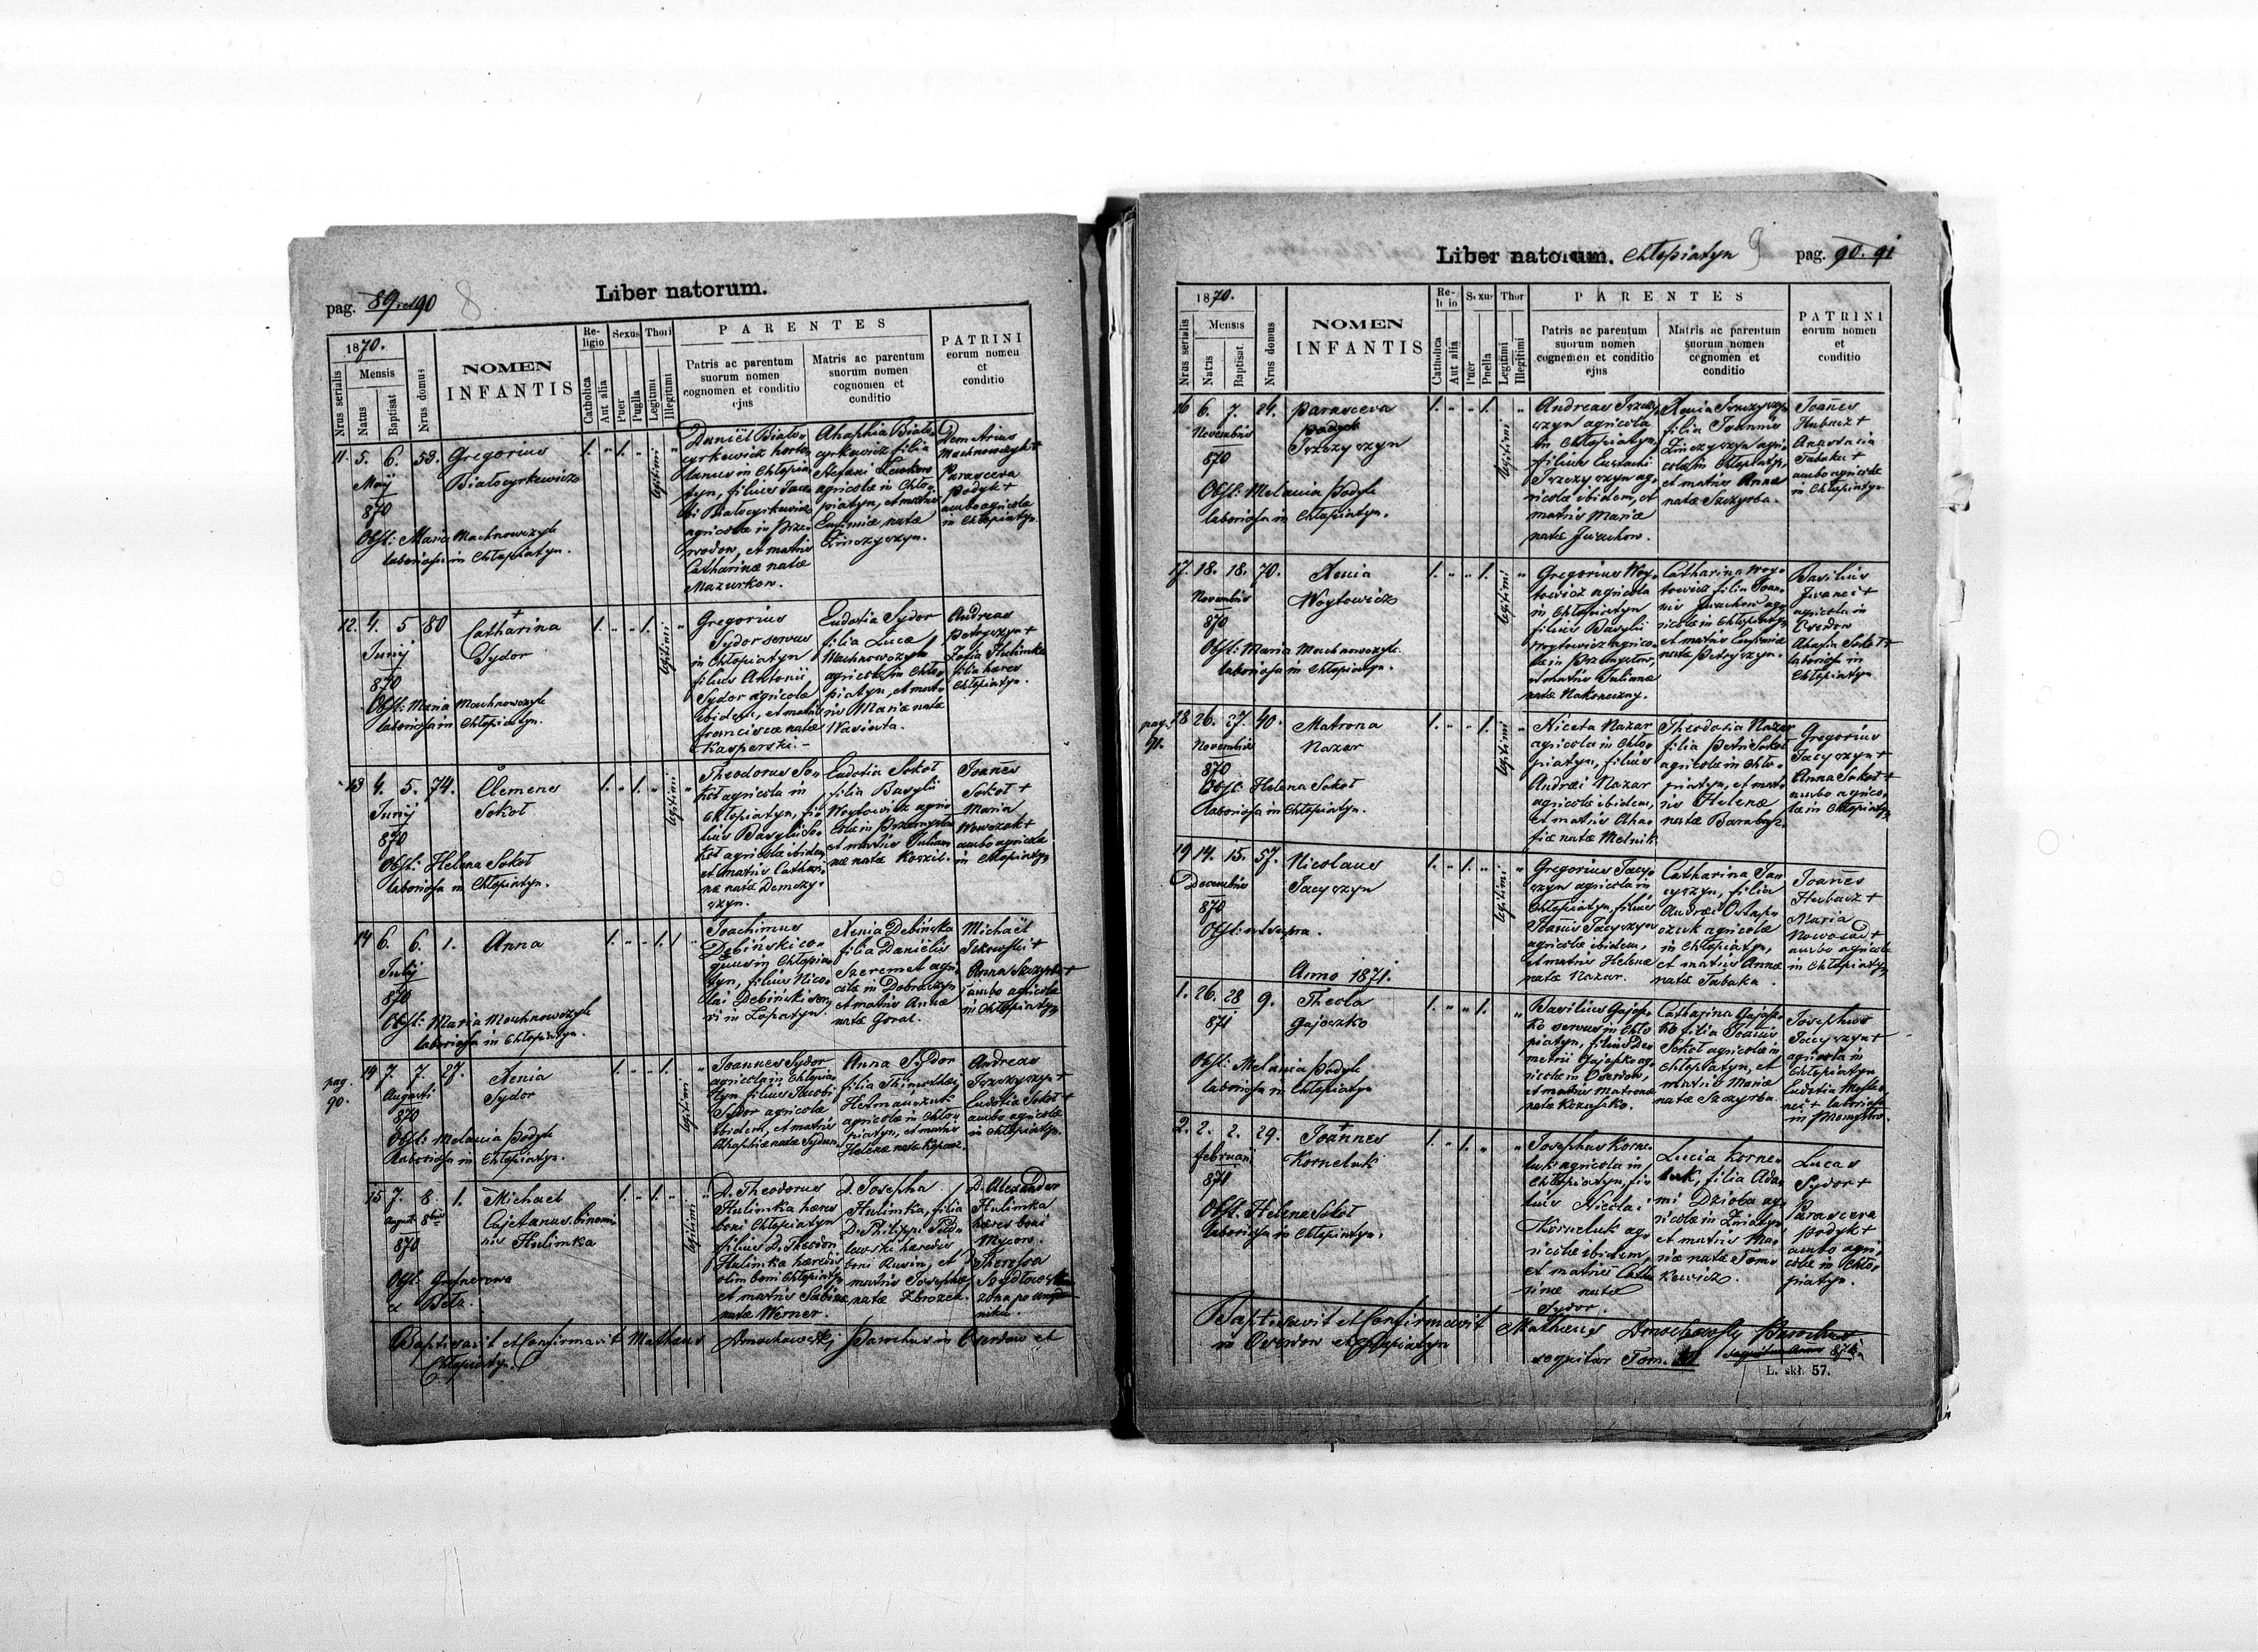 pag. 89 et 90 8
Liber natorum.
1870.
Nrus serialis
Mensis
Natus
Baptisat
Nrus domus
NOMEN
INFANTIS
Re-
ligio
Catholica
Aut alia
Sexus
Puer
Puella
Thori
Legitimi
Illegitimi
PARENTES
Patris ac parentum
suorum nomen
cognomen et conditio
ejus
Matris ac parentum
suorum nomen
cognomen et
conditio
PATRINI
eorum nomen
et
conditio
11. 5. 6. 53. Gregorius
Białocyrkewicz
Maij
870
Obst: Maria Machnowczyk
laboriosa in Chłopiatyn.
1. " 1. " legitimi "
Daniel Biało-
cyrkewicz horto-
lanus in Chłopia-
tyn, filius Jaco-
bi Białocyrkewicz
agricolæ in Prze-
wodow, et matris
Catharinæ natæ
Mazurkow.
Ahaphia Biało-
cyrkewicz filia
Stefani Lewkow
agricolæ in Chło-
piatyn, et matris
Eufimiæ natæ
Zinczyszyn.
Machnowczyk +
Parasceva
Podyk +
ambo agricolæ
in Chłopiatyn.
12. 4. 5 80 Catharina
Sydor
Junij
870
Obst: Maria Machnowczyk
laboriosa in Chłopiatyn.
1. " " 1. legitimi "
Gregorius
Sydor servus
in Chłopiatyn
filius Antonii
Sydor agricolæ
ibidem, et matris
Franciscæ natæ
Kasperski.-
Eudotia Sydor
filia Lucæ
Machnowczyk
agricolæ in Chło-
piatyn, et mat-
ris Mariæ natæ
Wasiuta.
Andreas
Petryszyn +
Zofia Hulimka
filia hæres
Chłopiatyn.
13 4. 5. 74. Clemens
Sokoł
Junij
870
Obst: Helena Sokoł
laboriosa in Chłopiatyn.
1. " 1. " legitimi "
Theodorus So-
koł agricola in
Chłopiatyn, fi-
lius Basylii So-
koł agricolæ ibidem
et matris Cathari-
næ natæ Demczy-
szyn.
Eudotia Sokoł
filia Basylii
Woytowicz agri-
colæ in Przemysłow
et matris Julian-
næ natæ Kozzil.
Joañes
Sokoł +
Maria
Nowosad +
ambo agricolæ
in Chłopiatyn
14 6. 6. 1. Anna
Julij
870
Obst: Maria Machnowczyk
laboriosa in Chłopiatyn.
1. " " 1. 1 "
Joachimus
Dębiński co-
quus in Chłopia-
tyn, filius Nico-
lai Dębiński ser-
vi in Łopatyn.
Xenia Dębińska
filia Danielis
Szeremet agri-
colæ in Dobraczyn
et matris Annæ
natæ Goral.
Michael
Jskowski +
Anna Szczyrba +
ambo agricolæ
in Chłopiatyn
pag.
90.
14 7. 7. 27. Xenia
Sydor
Augusti
870
Obst: Melania Podyk
laboriosa in Chłopiatyn.
1. " " 1. legitimi "
Joannes Sydor
agricola in Chłopia-
tyn filius Jacobi
Sydor agricolæ
ibidem, et matris
Ahaphiæ natæ Sydor.
Anna Sydor
filia Thimothei
Hetmańczuk
agricolæ in Chło-
piatyn, et matris
Helenæ natæ Kopacz.
Andreas
Trzczyszyn +
Eudotia Sokoł +
ambo agricolæ
in Chłopiatyn.
15 7. 8. 1. Michael
Cajetanus binomi-
nis Hulimka
August 8bris
870
Obst. Grafnerowa
e Bełz.
1. " 1. " legitimi "
D. Theodorus
Hulimka hæres
boni Chłopiatyn
filius D. Theodori
Hulimka hæredis
olim boni Chłopiatyn
et matris Sabinæ
natæ Werner.
D. Josepha
Hulimka, filia
D. Philippi Podo-
lewski hæredis
boni Rusin, et
matris Josephæ
natæ Zbrozek.
D. Alexander
Hulimka
hæres boni
Mycow.
D. Theressa
żona po urzęd-
niku.
Baptisavit et Confirmavit Mathæus Dmochowski Parochus in Oserdow et
Chłopiatyn.
Liber natorum. Chłopiatyn 9 pag. 90. 91
1870.
Nrus serialis
Mensis
Natus
Baptisat.
Nrus domus
NOMEN
INFANTIS
Re-
ligio
Catholica
Aut alia
Sexus
Puer
Puella
Thori
Legitimi
Illegitimi
PARENTES
Patris ac parentum
suorum nomen
cognomen et conditio
ejus
Matris ac parentum
suorum nomen
cognomen et
conditio
PATRINI
eorum nomen
et
conditio
16 6. 7. 24. Parasceva
Podyk
Trzczyszyn
Novembris
870
Obst: Melania Podyk
laboriosa in Chłopiatyn.
1. " " 1. legitimi "
Andreas Trzczy-
szyn agricola
in Chłopiatyn,
filius Eustachi
Trzczyszyn ag-
ricolæ ibidem, et
matris Mariæ
natæ Jwachow.
Xenia Trzczyszyn
filia Joannis
Zinczyszyn agri-
colæ in Chłopiatyn,
et matris Annæ
natæ Szczyrba.
Joañes
Hubacz +
Anastasia
Tabaka +
ambo agricolæ
in Chłopiatyn
17. 18. 18. 70. Xenia
Woytowicz
Novembris
870
Obst: Maria Machnowczyk
laboriosa in Chłopiatyn.
1. " " 1. legitimi "
Gregorius Woy-
towicz agricola
in Chłopiatyn
filius Basylii
Woytowicz agrico-
læ in Przemysłow,
et matris Julianæ
natæ Nakoneczny.
Catharina Woy-
towicz filia Joan-
nis Jwachow ag-
ricolæ in Chłopiatyn
et matris Eufimiæ
natæ Petryszyn.
Basilius
Jwanci +
agricola in
Oserdow
Ahafia Sokoł +
laboriosa in
Chłopiatyn
pag.
91.
18 26. 27. 40. Matrona
Nazar
Novembris
870
Obst: Helena Sokoł
laboriosa in Chłopiatyn.
1. " " 1. legitimi "
Niceta Nazar
agricola in Chło-
piatyn, filius
Andreæ Nazar
agricolæ ibidem,
et matris Aha-
fiæ natæ Melnik.
Theodotia Nazar
filia Petri Sokoł
agricolæ in Chło-
piatyn, et mat-
ris Helenæ
natæ Barabasz.
Gregorius
Jacyszyn +
Anna Sokoł +
ambo agrico-
læ in Chłopiatyn
19 14. 15. 57. Nicolaus
Jacyszyn
Decembris
870
Obst: ut supra.
1. " 1. " legitimi "
Gregorius Jacy-
szyn agricola in
Chłopiatyn, filius
Joañis Jacyszyn
agricolæ ibidem,
et matris Helenæ
natæ Nazar.
Catharina Jan-
cyszyn, filia
Andreæ Ostap-
czuk agricolæ
in Chłopiatyn,
et matris Annæ
natæ Tabaka.
Joañes
Hubacz +
Maria
Nowosad +
ambo agricolæ
in Chłopiatyn
Anno 1871.
1. 26. 28 9. Thecla
Gajoszko
871
Obst: Melania Podyk
laboriosa in Chłopiatyn
1. " " 1. "
Wasilius Gajosz-
ko servus in Chło-
piatyn, filius De-
metrii Gajoszko ag-
ricolæ in Oserdow,
et matris Matronæ
natæ Kozuszko.
Catharina Gajosz-
ko filia Joañis
Sokoł agricolæ in
Chłopiatyn, et
matris Mariæ
natæ Szczyrba.
Josephus
Jacyszyn +
agricola in
Chłopiatyn
2. 2. 2. 29. Joannes
Korneluk
Februarii
871
Obst. Helena Sokoł
laboriosa in Chłopiatyn.
1. " 1. " "
Josephus Korne-
luk agricola in
Chłopiatyn, fi-
lius Nicolai
Korneluk ag-
ricolæ ibidem,
et matris Catha-
rinæ natæ
Sydor.
Lucia Korne-
luk, filia Ada-
mi Dzioba ag-
ricolæ in Żniatyn
et matris Ma-
riæ natæ Tom-
kewicz.
Lucas
Sydor +
Parasceva
Podyk +
ambo agri-
colæ in Chło-
piatyn.
Baptisavit et Confirmavit Mathæus Dmochowski Parochus
in Oserdow et Chłopiatyn
sequitur Tom.
L. skł. 57.